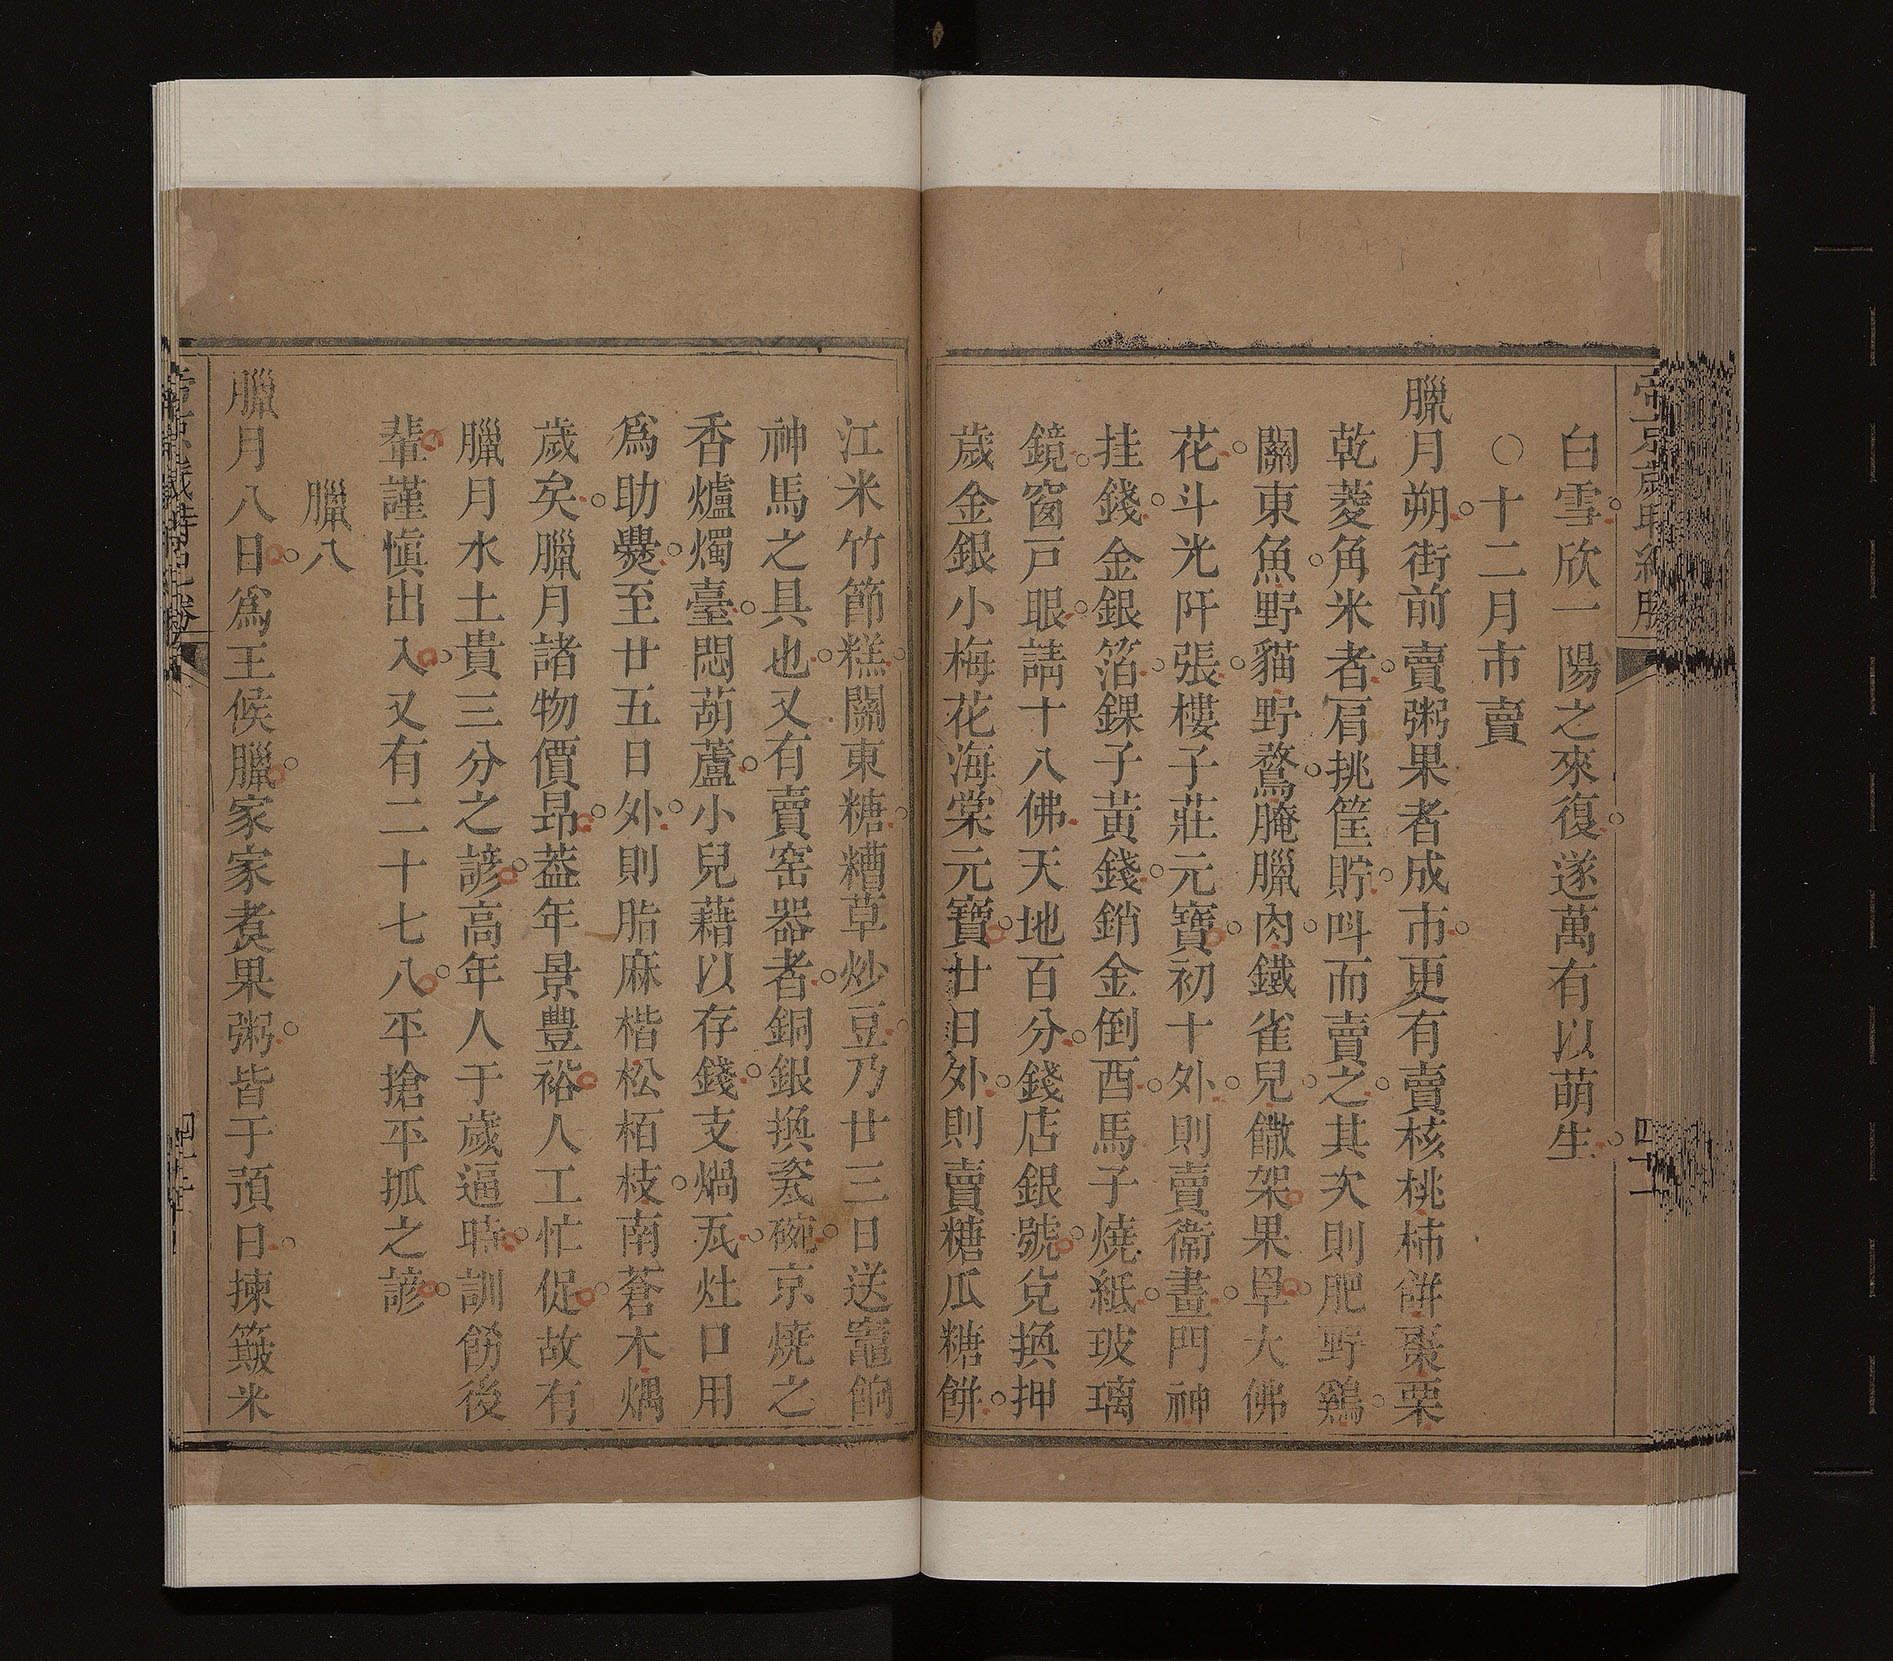 帝京歲時紀勝
白雪欣一陽之來復遂萬有以萌生
○十二月市賣
臘月朔街前賣粥果者成市更有賣核桃柿餅棗栗
乾菱角米者肩挑筐貯呌而賣之其次則肥野鷄
關東魚野貓野鶩腌臘肉鐵雀兒饊架果旱大佛
花斗光阡張樓子莊元寶初十外則賣衞畫門神
挂錢金銀箔錁子黃錢銷金倒酉馬子燒紙玻璃
鏡窗戶眼請十八佛天地百分錢店銀號兌換押
歲金銀小梅花海棠元寶廿日外則賣糖瓜糖餅
江米竹節糕關東糖糟草炒豆乃廿三日送竈餉
神馬之具也又有賣窑器者銅銀換瓷碗京燒之
香爐燭臺悶葫蘆小兒藉以存錢支煱瓦灶口用
爲助爨至廿五日外則脂麻楷松栢枝南蒼木煱
歲矣臘月諸物價昻葢年景豐裕人工忙促故有
臘月水土貴三分之諺高年人于歲逼時訓飭後
輩謹愼出入又有二十七八平搶平抓之諺
臘八
臘月八日爲王侯臘家家煮果粥皆于預日揀簸米